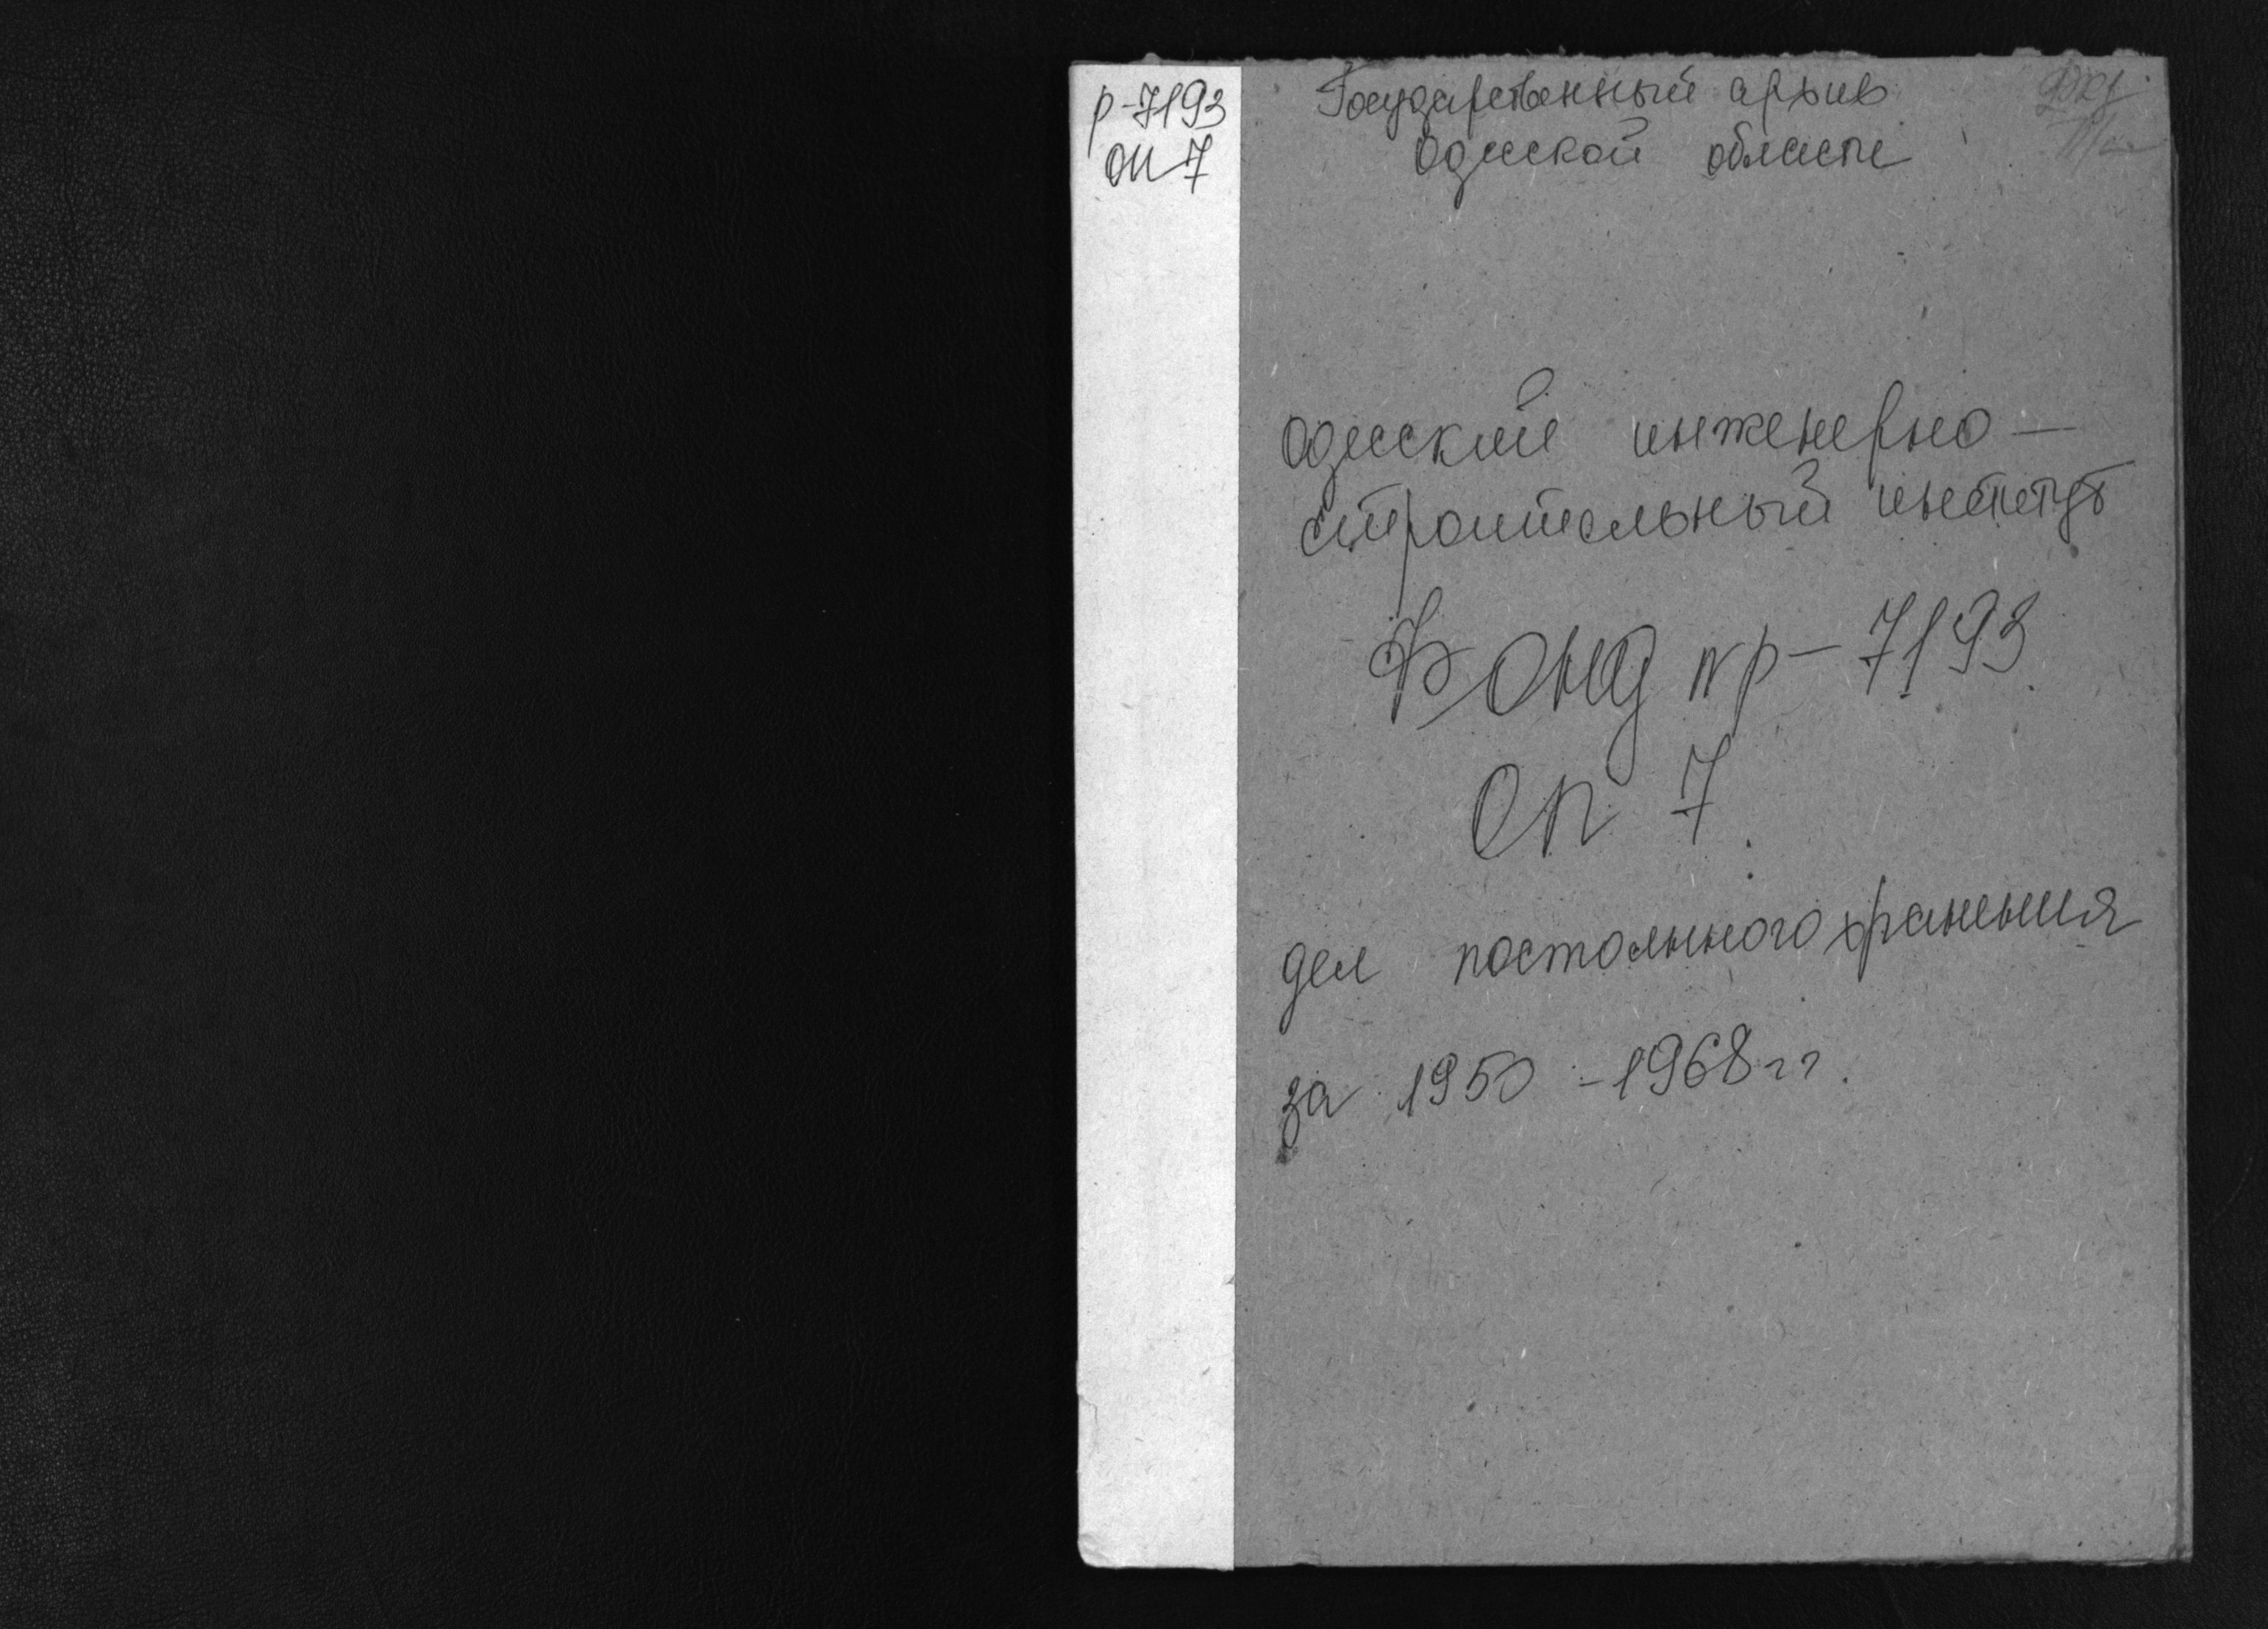 р-7193
оп 7
Государственный архив
Одесской области
Одесский инженерно-
строительный институт
Фонд №р-7193
Оп 7
дел постоянного хранения
за 1950-1968гг.